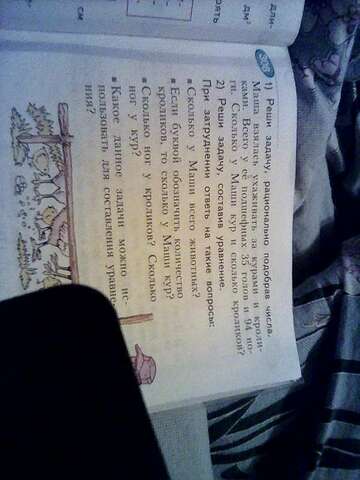 дли-
дм²
рять
см
1) Реши задачу, рационально подобрав числа.
Маша взялась ухаживать за курами и кроли-
ками. Всего у её подшефных 35 голов и 94 но-
ги. Сколько у Маши кур и сколько кроликов?
2) Реши задачу, составив уравнение.
При затруднении ответь на такие вопросы:
▪ Сколько у Маши всего животных?
▪ Если буквой обозначить количество
кроликов, то сколько у Маши кур?
▪ Сколько ног у кроликов? Сколько
ног у кур?
▪ Какое данное задачи можно ис-
пользовать для составления уравне-
ния?